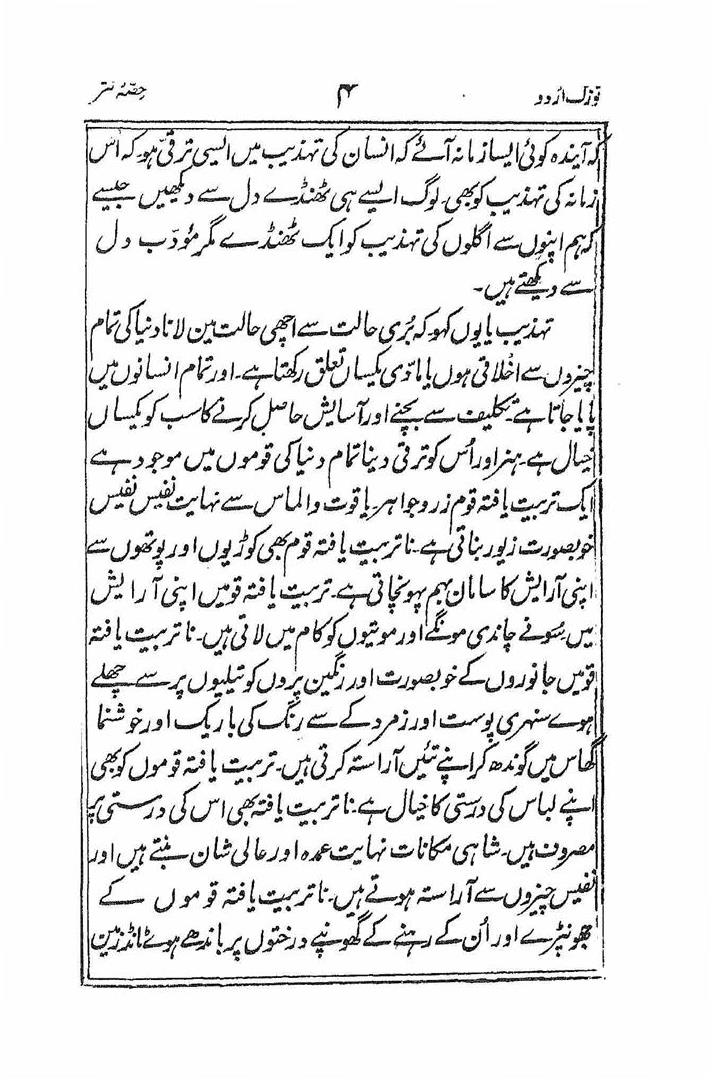 نوزل اردو ۴ حصۂ نثر
کہ آیندہ کوئی ایسا زمانہ آئے کہ انسان کی تہذیب میں ایسی ترقی ہو۔ کہ اُس
زمانہ کی تہذیب کو بھی۔ لوگ ایسے ہی ٹھنڈے دل سے دیکھیں جیسے
کہ ہم اپنوں سے اگلوں کی تہذیب کو ایک ٹھنڈے مگر مؤدّب دل
سے دیکھتے ہیں۔
تہذیب یا یوں کہو کہ بُری حالت سے اچھی حالت مین لانا دنیا کی تمام
چیزوں سے اخلاقی ہوں یا مادّی یکساں تعلق رکھتا ہے۔ اور تمام انسانوں میں
پایا جاتا ہے۔ تکلیف سے بچنے اور آسایش حاصل کرنے کا سب کو یکساں
خیال ہے۔ ہنر اور اُس کو ترقی دینا تمام دنیا کی قوموں میں موجود ہے
ایک تربیت یافتہ قوم زر و جواہر۔ یاقوت و الماس سے نہایت نفیس نفیس
خوبصورت زیور بناتی ہے۔ نا تربیت یافتہ قوم بھی کوڑیوں اور پوتھوں سے
اپنی آرایش کا سامان بہم پہونچاتی ہے۔ تربیت یافتہ قومیں اپنی آرایش
میں سونے چاندی مونگے اور موتیوں کو کام میں لاتی ہیں۔ نا تربیت یافتہ
قومیں جانوروں کے خوبصورت اور رنگین پروں کو تیلیوں پر سے چھلے
ہوے سنہری پوست اور زمرد کے سے رنگ کی باریک اور خوشنما
گھاس میں گوندھ کر اپنے تئیں آراستہ کرتی ہیں۔ تربیت یافتہ قوموں کو بھی
اپنے لباس کی درستی کا خیال ہے۔ نا تربیت یافتہ بھی اس کی درستی پر
مصروف ہیں۔ شاہی مکانات نہایت عمدہ اور عالی شان بنتے ہیں اور
نفیس چیزوں سے آراستہ ہوتے ہیں۔ نا تربیت یافتہ قوموں کے
جھونپڑے اور اُن کے رہنے کے گھونپے درختوں پر باندھے ہوے ٹانڈ زمین